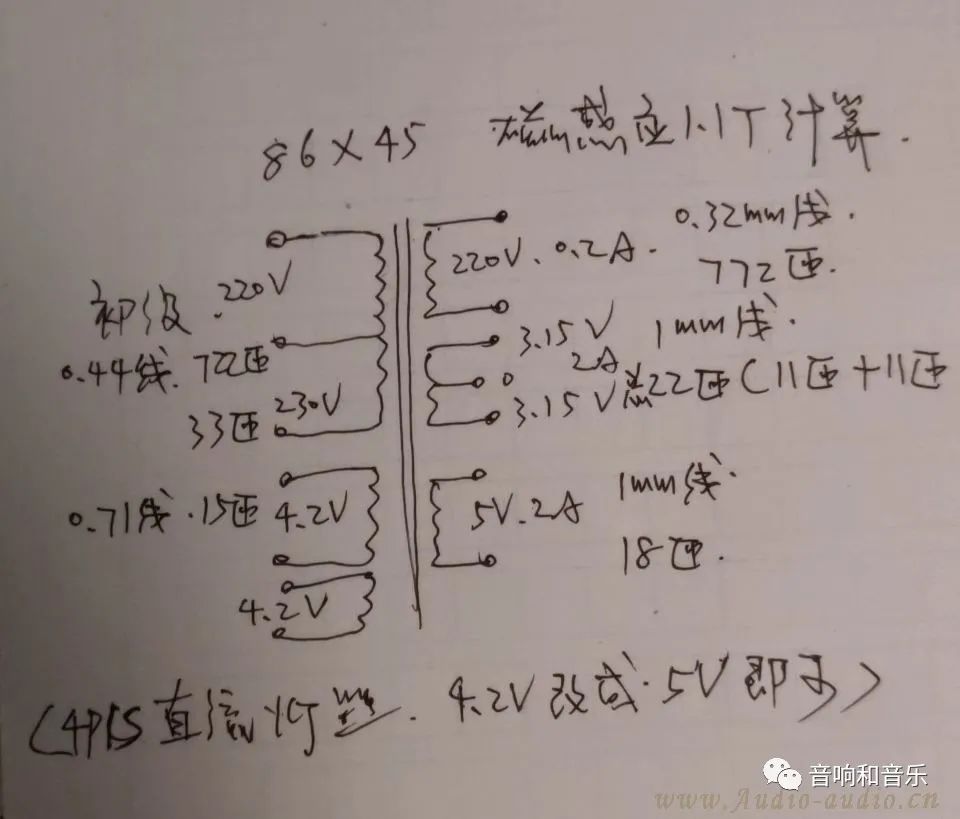 86×45 磁感应1.1T计算.
220V.0.2A. 0.32mm线.
772匝.
初级.220V
0.44线. 722匝
3.15V 1mm线.
2A
0
3.15V 总22匝(11匝+11匝
33匝 230V
0.71线.15匝 4.2V
5V.2A 1mm线.
18匝.
4.2V
(4P1S直流灯丝. 4.2V改成.5V即可)
音响和音乐
www.Audio-audio.cn